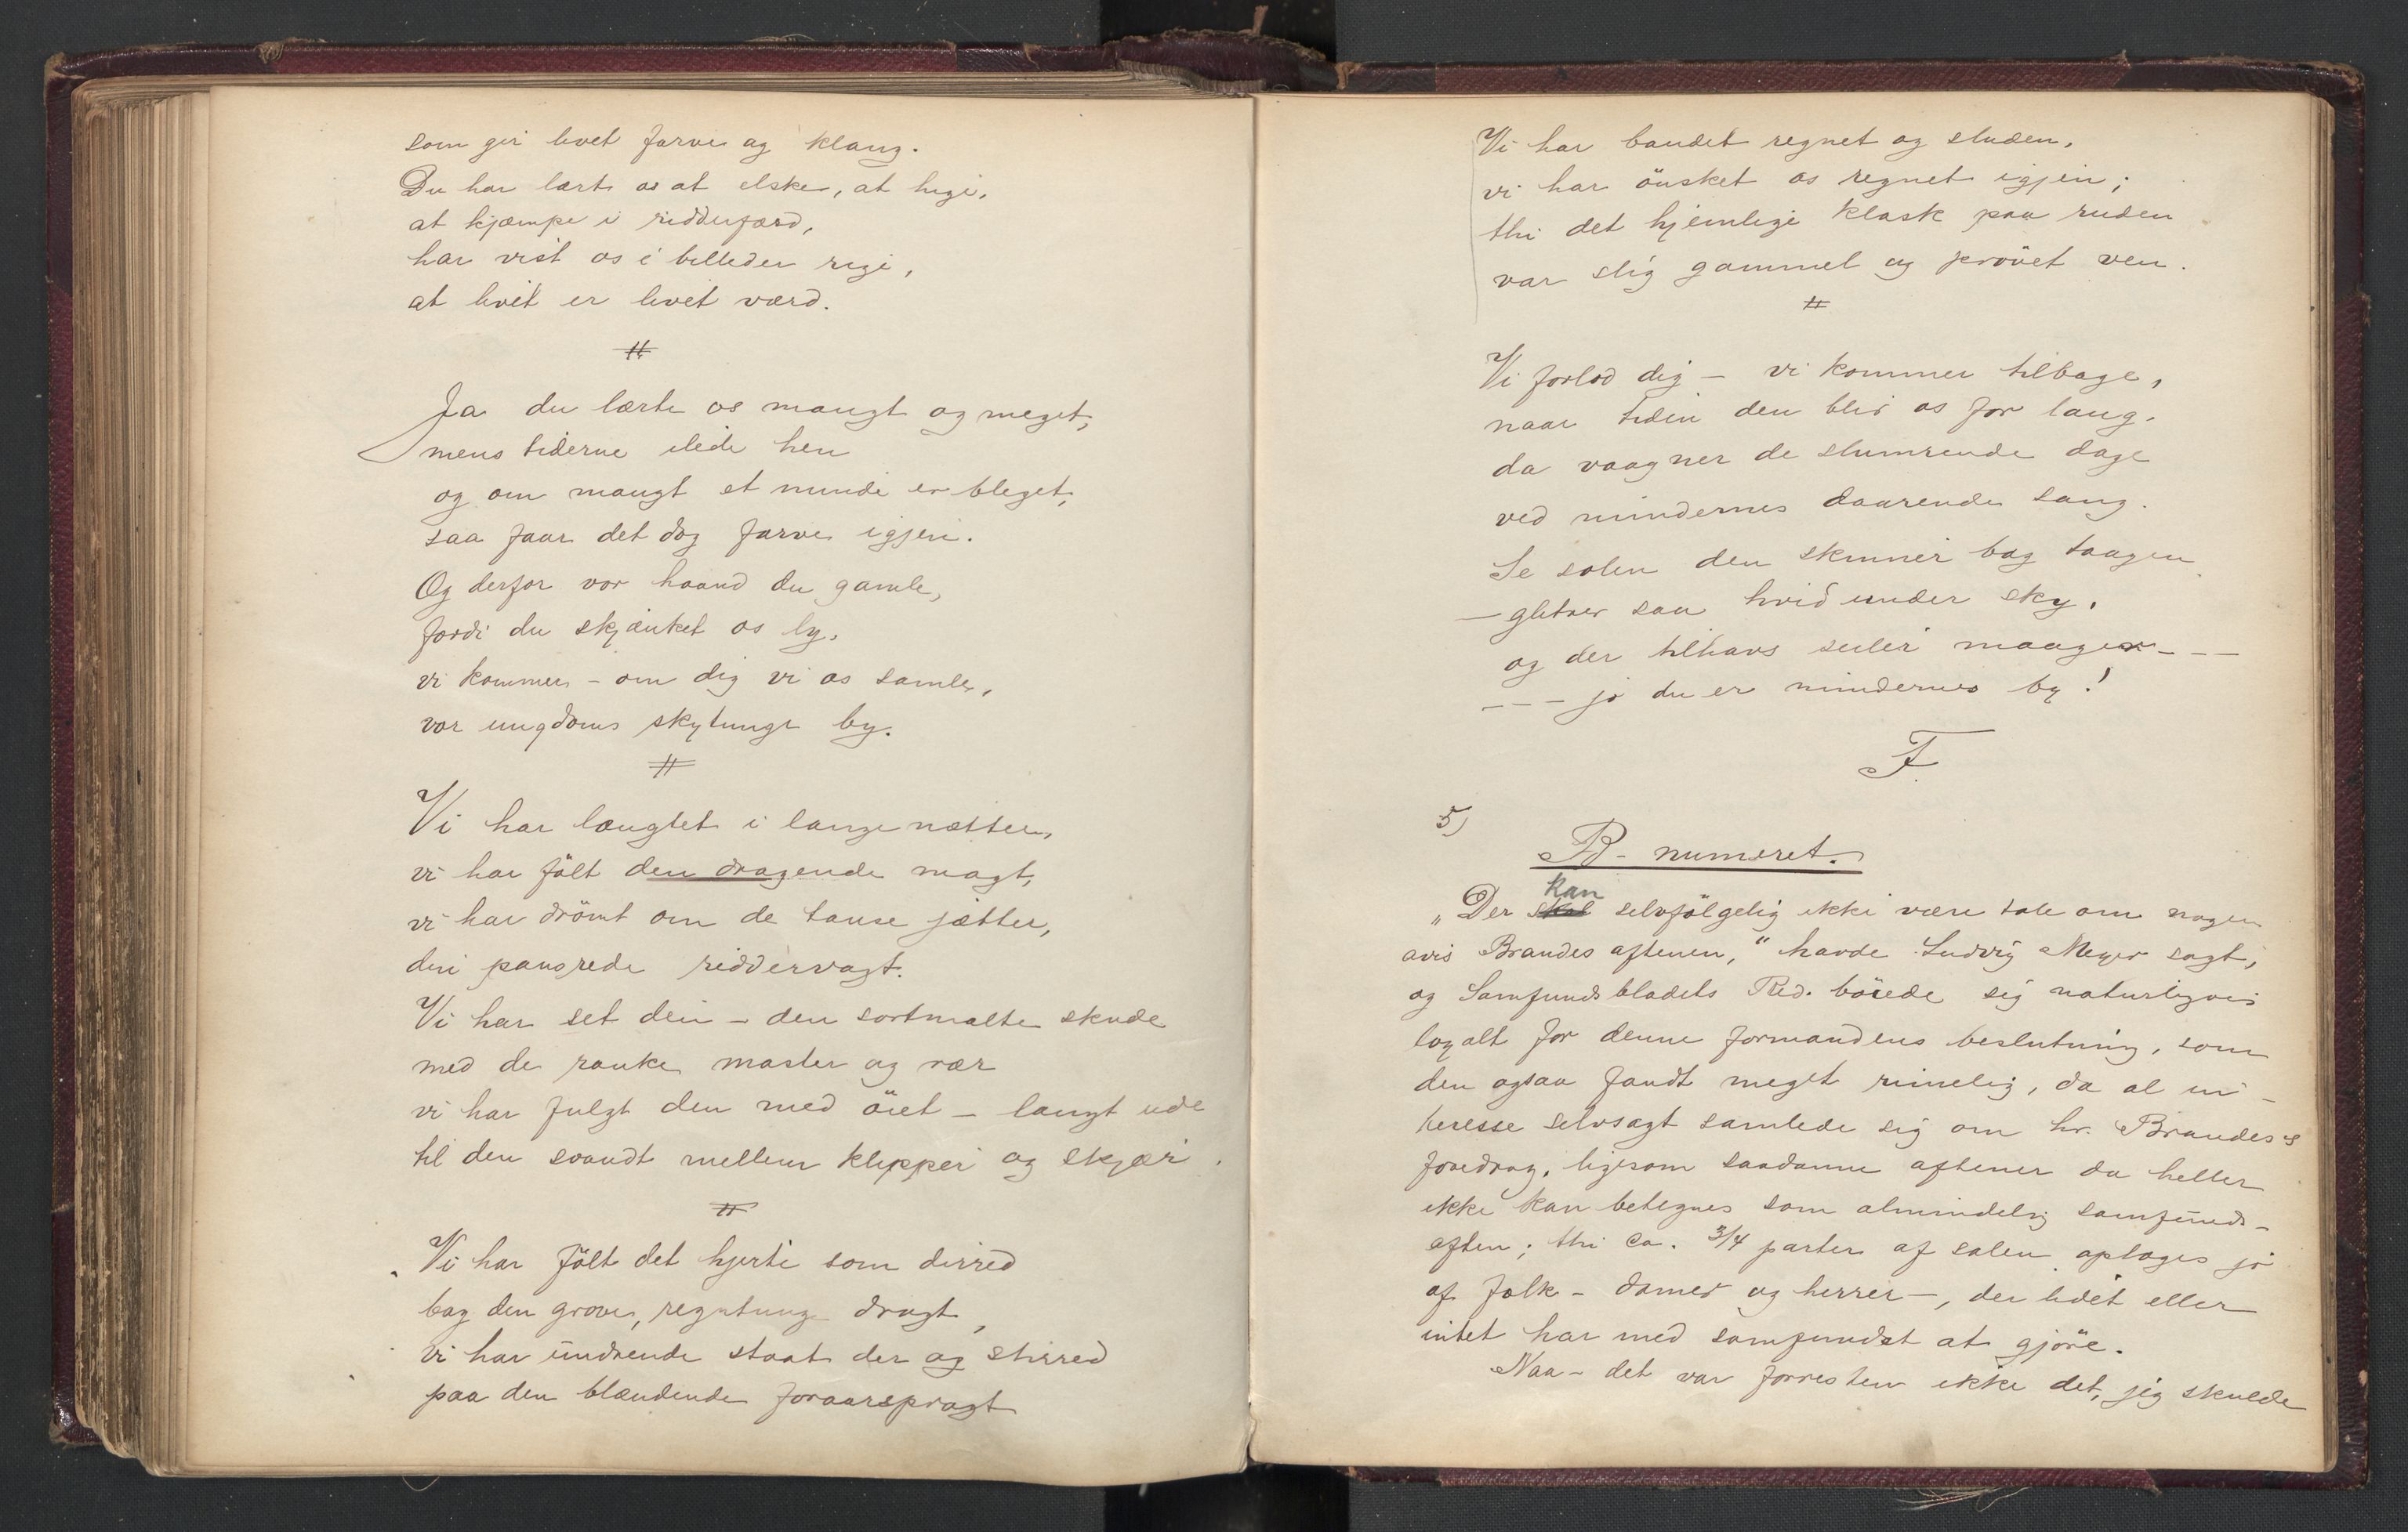 som gir livet farve og klang.
Du har lært os at elske, at hige,
at kjæmpe i ridderfærd,
har vist os i billeder rige,
at livet er livet værd.
#
Ja du lærte os mangt og meget,
mens tiderne ilede hen
og om mangt et minde er bleget,
saa faar det dog farve igjen.
Og derfor vor haand du gamle,
fordi du skjænket os ly,
vi kommer – om dig vi os samler,
vor ungdoms skytunge by.
#
Vi har længtet i lange nætter,
vi har fölt den dragende magt,
vi har drömt om de tause jætter,
din pansrede riddervagt.
Vi har set den – den sortmalte skude
med de ranke master og rær
vi har fulgt den med öiet – langt ude
til den svandt mellem klipper og skjær.
#
Vi har fölt det hjerte som dirred
bag den grove, regntunge dragt,
vi har undrende staat der og stirred
paa den blændende foraarspragt
Vi har bandet regnet og sluden,
vi har önsket os regnet igjen;
thi det hjemlige klask paa ruden
var slig gammel og prövet ven.
#
Vi forlod dig – vi kommer tilbage,
naar tiden den blir os for lang,
da vaagner de slumrende dage
ved mindernes daarende sang.
Se solen den skinner bag taagen
– glitrer saa hvid under sky,
og der tilhavs seiler maagen – – –
– – – jo du er mindernes by!
F.
5)
B - numeret.
„Der kan selvfölgelig ikke være tale om nogen
avis Brandes aftenen,“ havde Ludvig Meyer sagt,
og Samfundsbladets Red. böiede sig naturligvis
loyalt for denne formandens beslutning, som
den ogsaa fandt meget rimelig, da al in-
teresse selvsagt samlede sig om hr. Brandes's
foredrag, ligesom saadanne aftener da heller
ikke kan betegnes som almindelig samfunds-
aften; thi ca. 3/4 parten af salen optoges jo
af folk – damer og herrer –, der lidet eller
intet har med samfundet at gjöre.
Naa – det var forresten ikke det, jeg skulde